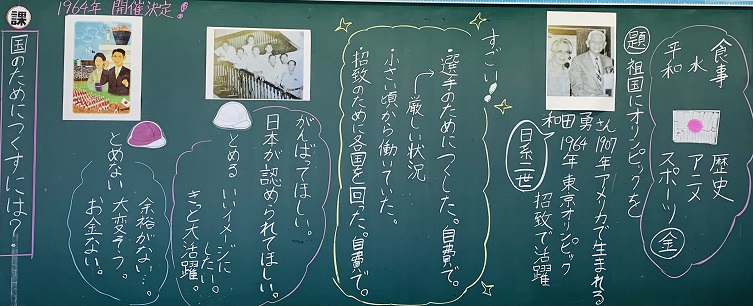 食事
水
平和
歴史
アニメ
スポーツ 金
題 祖国にオリンピックを
和田勇さん
1907年アメリカで生まれる
1964年東京オリンピック
招致で活躍
日系二世
すごい!
・選手のためにつくした。自費で。
厳しい状況
小さい頃から働いていた。
・招致のために各国を回った。自費で。
がんばってほしい。
日本が認められてほしい。
とめる いいイメージに
したい。
きっと大活躍。
とめない
余裕がない…。
大変そう。
お金ない。
1964年 開催決定!
課
国のためにつくすには?